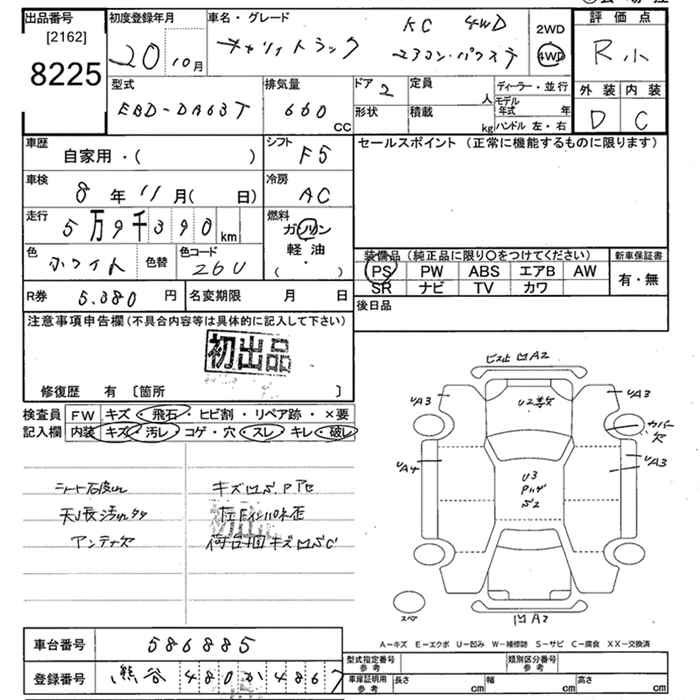 出品番号
[2162]
8225
初度登録年月
20 10月
車名・グレード
KC 4WD
キャリイトラック エアコン・パワステ
2WD
4WD
評価点
R小
外装 内装
D C
型式
EBD-DA63T
排気量
660 CC
ドア 2
形状
定員 人
積載 kg
ディーラー・並行
モデル年式 年
ハンドル 左・右
車歴
自家用・( )
シフト
F5
車検
8年11月( 日)
冷房
AC
走行
5万9千390km
燃料
ガソリン
軽油
( ・ )
色
ホワイト
色替
色コード
26U
R券 5.380 円
名変期限 月 日
セールスポイント (正常に機能するものに限ります)
装備品 (純正品に限り○をつけてください)
PS PW ABS エアB AW
SR ナビ TV カワ
新車保証書
有・無
後日品
注意事項申告欄(不具合内容等は具体的に記入して下さい)
初出品
修復歴 有 〔箇所 〕
検査員
記入欄
FW キズ・飛石・ヒビ割・リペア跡・×要
内装 キズ・汚レ・コゲ・穴・スレ・キレ・破レ
シート破レ
天張汚レ
アンテナ欠
ビス止 凹A2
UA3
UA3
U2多数
カバー欠
UA4
UA3
U3
凹A2
スペア
A-キズ E-エクボ U-凹み W-補修跡 S-サビ C-腐食 XX-交換済
車台番号 586885
登録番号 熊谷 480か4867
型式指定番号
参考
類別区分番号
参考
車庫証明用
参考
長さ cm 幅 cm 高さ cm